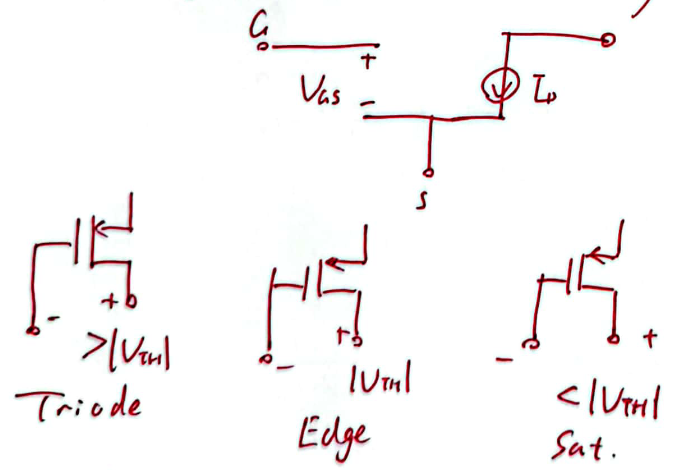 G
+
V_GS
-
I_D
S
+
-
>|V_TH|
Triode
+
-
|V_TH|
Edge
-
+
<|V_TH|
Sat.